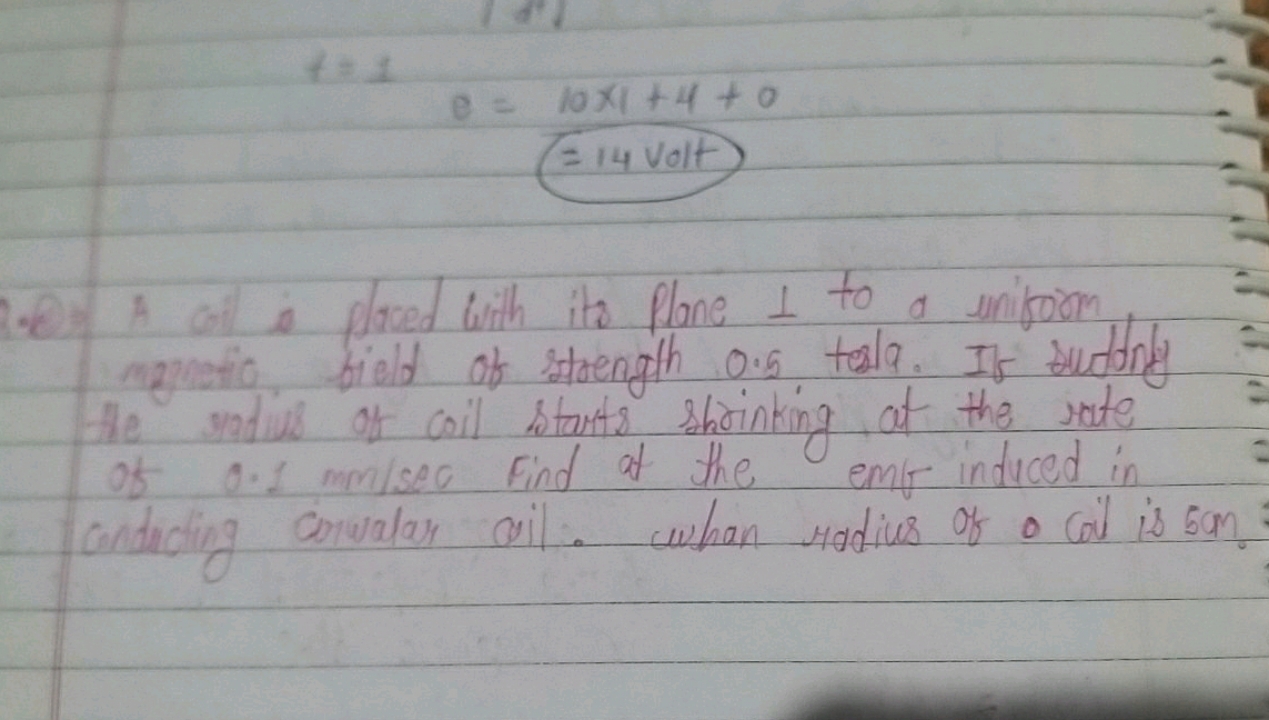 t = 1
e = 10×1 + 4 + 0
= 14 Volt
A coil is placed with its Plane ⊥ to a uniform
magnetic field of strength 0.5 tesla. If suddnly
the radius of coil starts shrinking at the rate
of 0.1 mm/sec Find at the emf induced in
conducting corwalar coil. whan radius of a coil is 5cm.